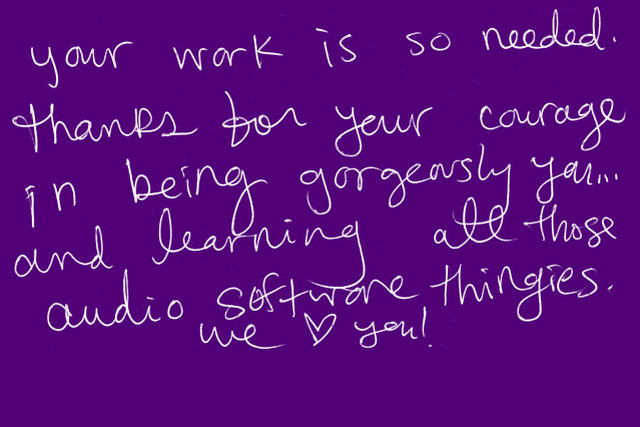 your work is so needed.
thanks for your courage
in being gorgeously you...
and learning all those
audio software thingies.
we ♡ you!